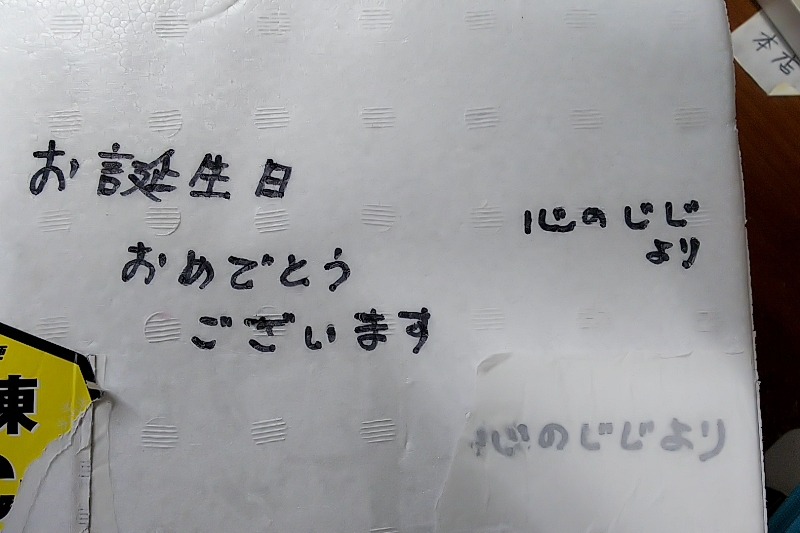 お誕生日
おめでとう
ございます
心のじじ
より
心のじじより
本店
凍